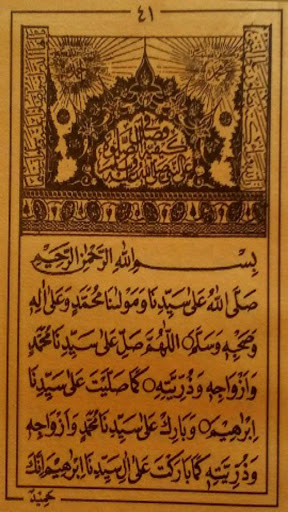 ٤١
فصل في
كيفية الصلوة
على النبي صلى الله عليه وسلم
بِسْمِ اللهِ الرَّحْمٰنِ الرَّحِيْمِ
صَلَّى اللهُ عَلٰى سَيِّدِنَا وَمَوْلٰنَا مُحَمَّدٍ وَعَلٰى اٰلِهٖ
وَصَحْبِهٖ وَسَلَّمَ○ اَللّٰهُمَّ صَلِّ عَلٰى سَيِّدِنَا مُحَمَّدٍ
وَاَزْوَاجِهٖ وَذُرِّيَّتِهٖ○ كَمَا صَلَّيْتَ عَلٰى سَيِّدِنَا
اِبْرٰهِيْمَ○ وَبَارِكْ عَلٰى سَيِّدِنَا مُحَمَّدٍ وَاَزْوَاجِهٖ
وَذُرِّيَّتِهٖ كَمَا بَارَكْتَ عَلٰى اٰلِ سَيِّدِنَا اِبْرٰهِيْمَ اِنَّكَ
حَمِيْدٌ